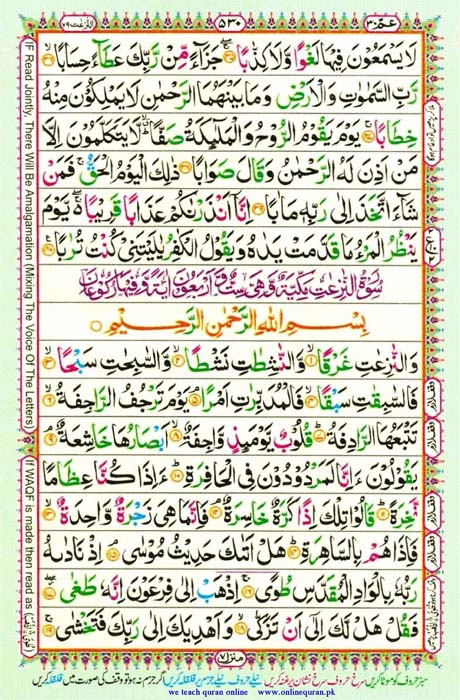 عمّ ٣٠
٥٣٠
النّٰزعٰت ٧٩
لَا يَسۡمَعُوۡنَ فِيۡهَا لَغۡوًا وَّلَا كِذّٰبًا ۚ‏﴿۳۵﴾ جَزَآءً مِّنۡ رَّبِّكَ عَطَآءً حِسَابًا ۙ‏﴿۳۶﴾
رَّبِّ السَّمٰوٰتِ وَالۡاَرۡضِ وَمَا بَيۡنَهُمَا الرَّحۡمٰنِ لَا يَمۡلِكُوۡنَ مِنۡهُ
خِطَابًا ۚ‏﴿۳۷﴾ يَوۡمَ يَقُوۡمُ الرُّوۡحُ وَالۡمَلٰٓٮِٕكَةُ صَفًّا ۙۗ لَّا يَتَكَلَّمُوۡنَ اِلَّا
مَنۡ اَذِنَ لَهُ الرَّحۡمٰنُ وَقَالَ صَوَابًا‏﴿۳۸﴾ ذٰلِكَ الۡيَوۡمُ الۡحَـقُّ ۚ فَمَنۡ
شَآءَ اتَّخَذَ اِلٰى رَبِّهٖ مَاٰبًا‏﴿۳۹﴾ اِنَّاۤ اَنۡذَرۡنٰـكُمۡ عَذَابًا قَرِيۡبًا ۖۚ يَّوۡمَ
يَنۡظُرُ الۡمَرۡءُ مَا قَدَّمَتۡ يَدٰهُ وَيَقُوۡلُ الۡـكٰفِرُ يٰلَيۡتَنِىۡ كُنۡتُ تُرٰبًا‏﴿۴۰﴾
سُوۡرَةُ النّٰزِعٰتِ مَكِّيَّةٌ وَّهِىَ سِتٌّ وَّاَرۡبَعُوۡنَ اٰيَةً وَّفِيۡهَا رُكُوۡعَانِ
بِسۡمِ اللهِ الرَّحۡمٰنِ الرَّحِيۡمِ
وَالنّٰزِعٰتِ غَرۡقًا ۙ‏﴿۱﴾ وَّالنّٰشِطٰتِ نَشۡطًا ۙ‏﴿۲﴾ وَّالسّٰبِحٰتِ سَبۡحًا ۙ‏﴿۳﴾
فَالسّٰبِقٰتِ سَبۡقًا ۙ‏﴿۴﴾ فَالۡمُدَبِّرٰتِ اَمۡرًا ۘ‏﴿۵﴾ يَوۡمَ تَرۡجُفُ الرَّاجِفَةُ ۙ‏﴿۶﴾
تَتۡبَعُهَا الرَّادِفَةُ ؕ‏﴿۷﴾ قُلُوۡبٌ يَّوۡمَٮِٕذٍ وَّاجِفَةٌ ۙ‏﴿۸﴾ اَبۡصَارُهَا خَاشِعَةٌ ۘ‏﴿۹﴾
يَقُوۡلُوۡنَ ءَاِنَّا لَمَرۡدُوۡدُوۡنَ فِى الۡحَـافِرَةِ ؕ‏﴿۱۰﴾ ءَاِذَا كُنَّا عِظَامًا
نَّخِرَةً ؕ‏﴿۱۱﴾ قَالُوۡا تِلۡكَ اِذًا كَرَّةٌ خَاسِرَةٌ ۘ‏﴿۱۲﴾ فَاِنَّمَا هِىَ زَجۡرَةٌ وَّاحِدَةٌ ۙ‏﴿۱۳﴾
فَاِذَا هُمۡ بِالسَّاهِرَةِ ؕ‏﴿۱۴﴾ هَلۡ اَتٰٮكَ حَدِيۡثُ مُوۡسٰى ۘ‏﴿۱۵﴾ اِذۡ نَادٰٮهُ
رَبُّهٗ بِالۡوَادِ الۡمُقَدَّسِ طُوًى ۚ‏﴿۱۶﴾ اِذۡهَبۡ اِلٰى فِرۡعَوۡنَ اِنَّهٗ طَغٰى ۖ‏﴿۱۷﴾
فَقُلۡ هَلۡ لَّكَ اِلٰٓى اَنۡ تَزَكّٰى ۙ‏﴿۱۸﴾ وَاَهۡدِيَكَ اِلٰى رَبِّكَ فَتَخۡشٰى ۚ‏﴿۱۹﴾
منزل ٧
IF Read Jointly, There Will Be Amalgamation (Mixing The Voice Of The Letters)
If WAQF is made then read as
سبز حروف کو موٹا کریں سرخ حروف سرخ نشان پر غنہ کریں نیلے حروف نیلے جزم پر قلقلہ کریں اگر جزم نہ ہو تو وقف کی صورت میں قلقلہ کریں
we teach quran online www.onlinequran.pk